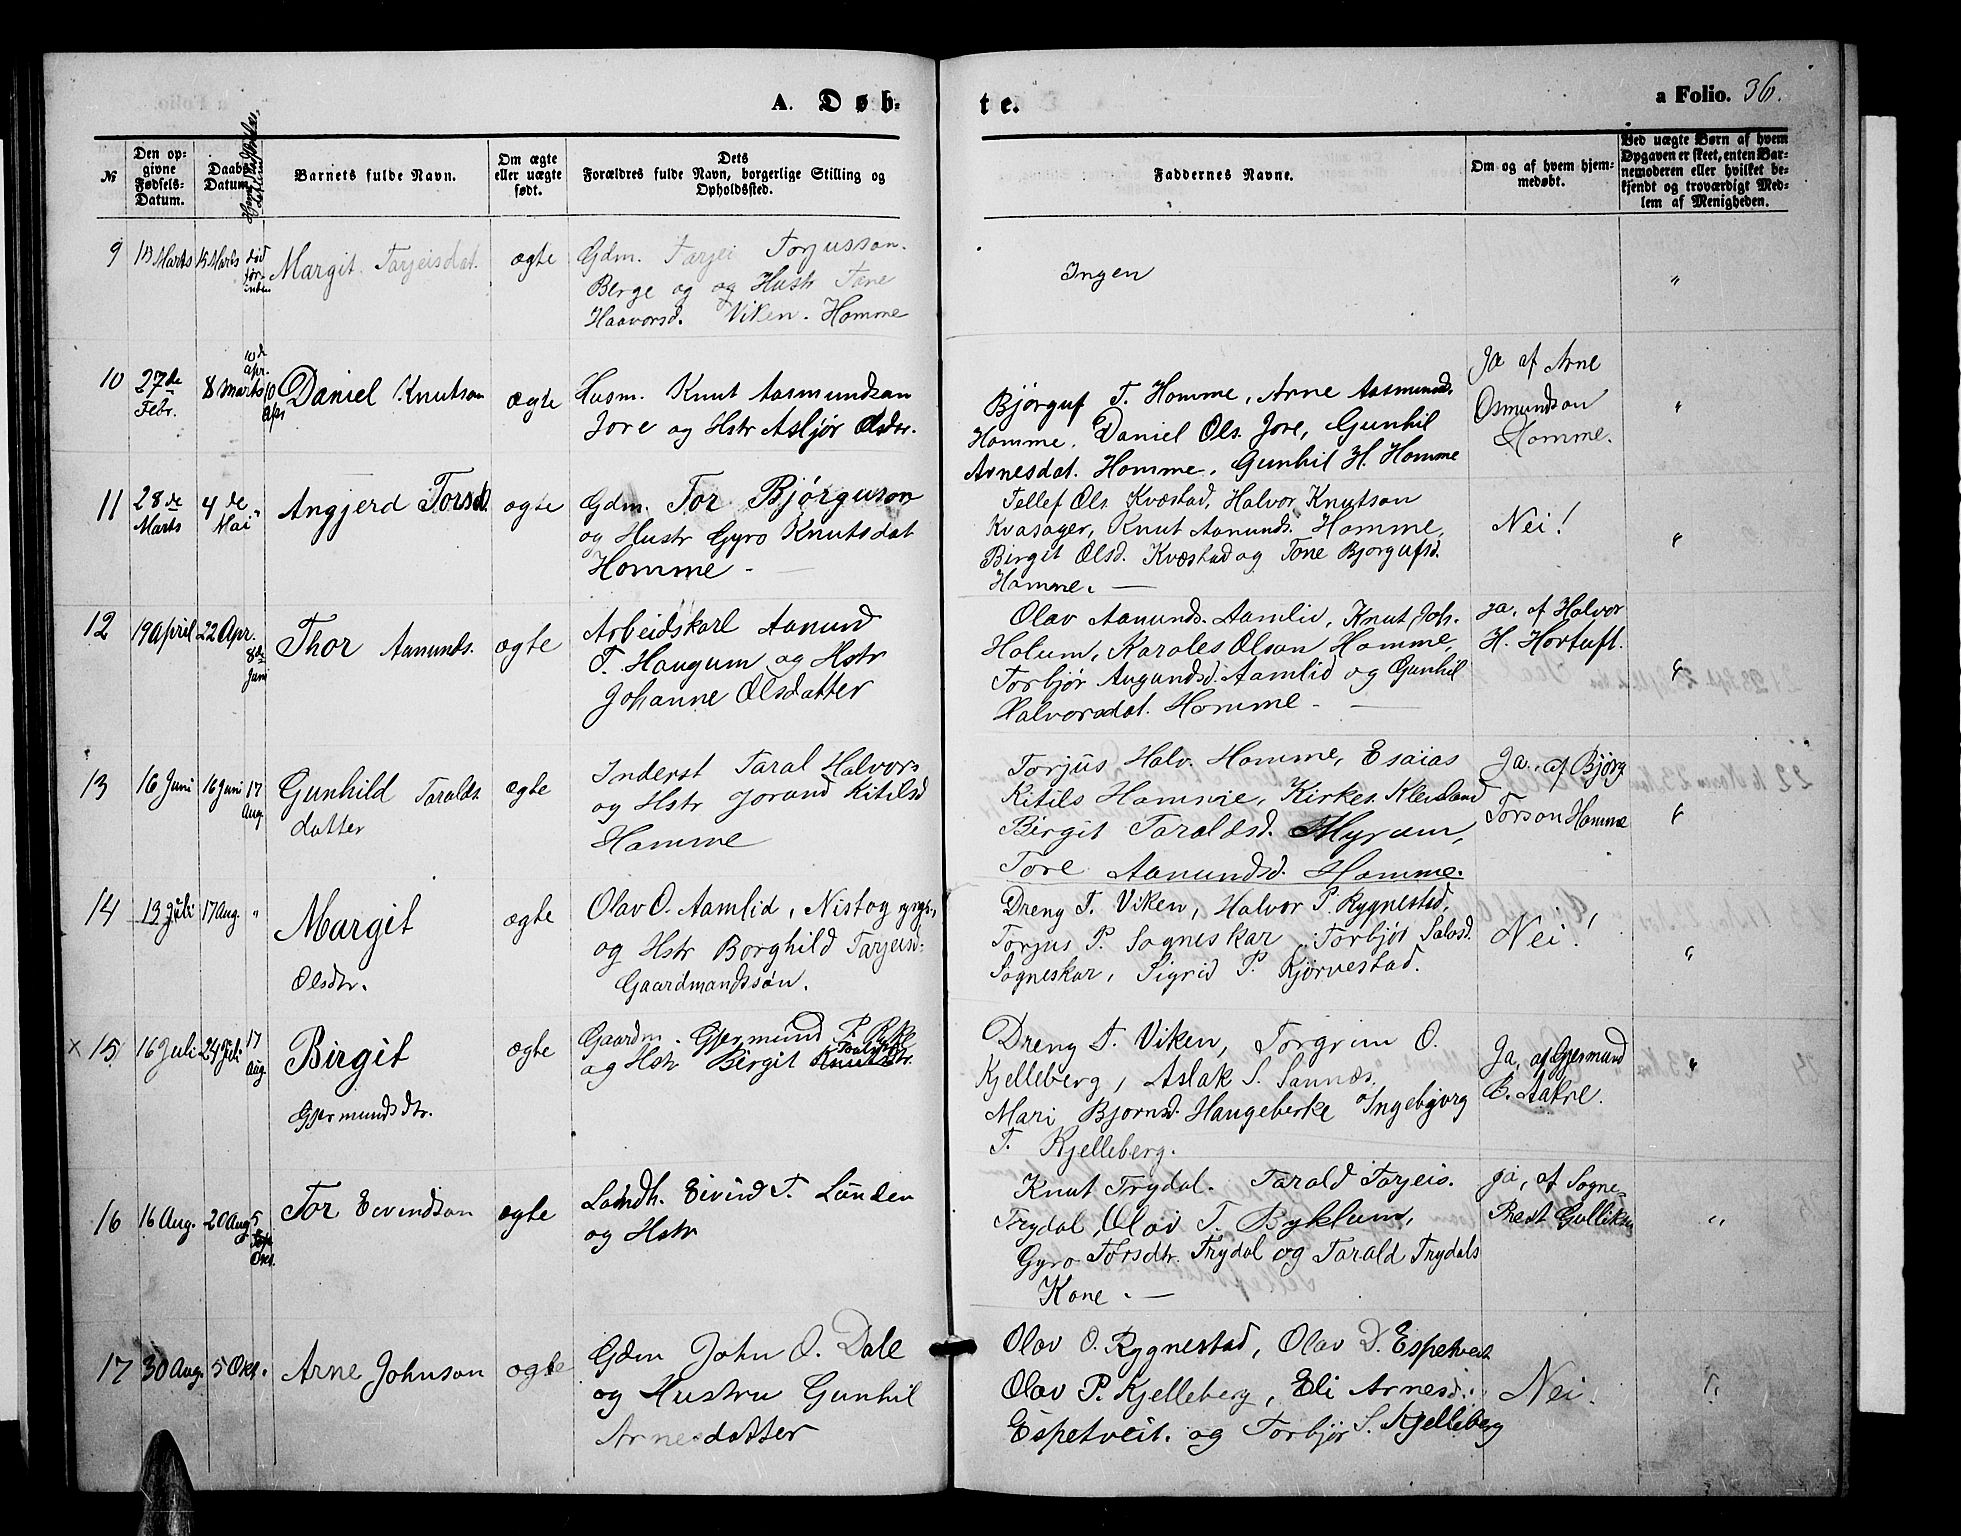 A. Døb-
te.
a Folio. 36.
№
Den op-
givne
Fødsels-
Datum.
Daabs
Datum.
Barnets fulde Navn.
Om ægte
eller uægte
født.
Dets
Forældres fulde Navn, borgerlige Stilling og
Opholdssted.
Faddernes Navne.
Om og af hvem hjem-
medøbt.
Ved uægte Børn af hvem
Opgaven er skeet, enten Bar-
nemoderen eller hvilket be-
kjendt og troværdigt Med-
lem af Menigheden.
9 13 Marts 15 Marts død
før-
inden
Margit Tarjeisdat.
ægte
Gdm. Tarjei Torjusson.
Berge og og Hustr Tone
Haavorsd. Viken. Homme
Ingen
"
10 27de
Febr.
8 Marts
10de
Apr.
10
Apr
Daniel Knutson
ægte
Husm. Knut Aasmundson
Jore og Hstr Asbjør Olsdtr.
Bjørguf T. Homme, Arne Aasmunds.
Homme, Daniel Ols. Jore, Gunhil
Arnesdat. Homme, Gunhil H. Homme
Ja af Arne
Osmundson
Homme.
"
11 28de
Marts
4de
Mai
"
Angjerd Torsd.
ægte
Gdm. Tor Bjørguson
og Hustr Gyro Knutsdat
Homme -
Tellef Ols. Kvæstad, Halvor Knutson
Kvasager, Knut Aanunds. Homme,
Birgit Olsd. Kvæstad og Tone Bjorgufsd.
Homme. —
Nei!
"
12 19 April 22 Apr.
8de
Juni
Thor Aanunds.
ægte
Arbeidskarl Aanund
T. Haugum og Hstr
Johanne Olsdatter
Olav Aanunds. Aamlid, Knut Joh.
Holum, Karoles Olson Homme,
Torbjør Augundsd. Aamlid og Gunhil
Halvorsdat. Homme -
ja, af Halvor
H. Hortuft.
"
13 16 Juni 16 Juni 17
Aug.
Gunhild Taralds
datter
ægte
Inderst Taral Halvors
og Hstr Jorand Kitilsd
Homme
Torjus Halv. Homme, Esaias
Kitils Homme, Kirkes. Kleiveland
Birgit Taraldsd. Myrum,
Tore Aanundsd. Homme.
Ja, af Bjørg
Torson Homme
"
14 13 Juli 17 Aug. "
Margit
Olsdtr.
ægte
Olav O. Aamlid, Nistog
og Hstr Borghild Tarjeisd.
Gaardmandssøn.
Dreng T. Viken, Halvor P. Rygnestad,
Torjus P. Sogneskar, Torbjør Salvsd.
Sogneskar, Sigrid P. Kjørvestad.
Nei!
"
x 15 16 Juli 24 Juli 17
Aug.
Birgit
Gjermundsdtr.
ægte
Gaardm. Gjermund P.
og Hstr Birgit
Dreng T. Viken, Torgrim O.
Kjelleberg, Aslak S. Sannæs,
Mari Bjornsd. Haugeberke o Ingebjørg
T. Kjelleberg.
Ja, af Gjermund
B. Aakre.
"
16 16 Aug. 20 Aug 5
Okt.
Tor Eivindson
ægte
Landh. Eivind T. Lunden
og Hstr
Knut Trydal. Tarald Tarjeis.
Trydal, Olav T. Byklum,
Gyro Torsdtr. Trydal og Tarald Trydals
Kone. —
ja, af Sogne-
Prest Gulliksen
"
17 30 Aug. 5 Okt.
Arne Johnson
ægte
Gdm John O. Dale
og Hustru Gunhil
Arnesdatter
Olav O. Rygnestad, Olav D. Espetveit
Olav P. Kjelleberg, Eli Arnesd.
Espetveit. og Torbjør S. Kjelleberg
Nei.